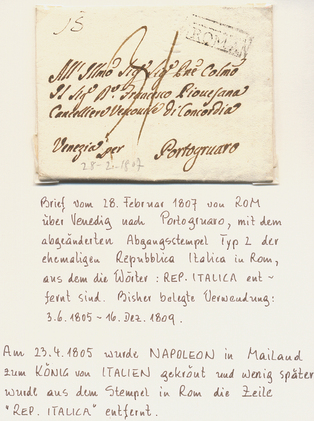 15
ROMA
All Illmo Sig.r Sig.r Prne Colmo
Il Sig.r D.r Francesco Piovesana
Cancelliere Vescovile di Concordia
Venezia per Portogruaro
28-2-1807
Brief vom 28. Februar 1807 von ROM
über Venedig nach Portogruaro, mit dem
abgeänderten Abgangsstempel Typ 2 der
ehemaligen Repubblica Italica in Rom,
aus dem die Wörter: REP. ITALICA ent-
fernt sind. Bisher belegte Verwendung:
3.6.1805 - 16. Dez. 1809.
Am 23.4.1805 wurde NAPOLEON in Mailand
zum KÖNIG von ITALIEN gekrönt und wenig später
wurde aus dem Stempel in Rom die Zeile
"REP. ITALICA" entfernt.